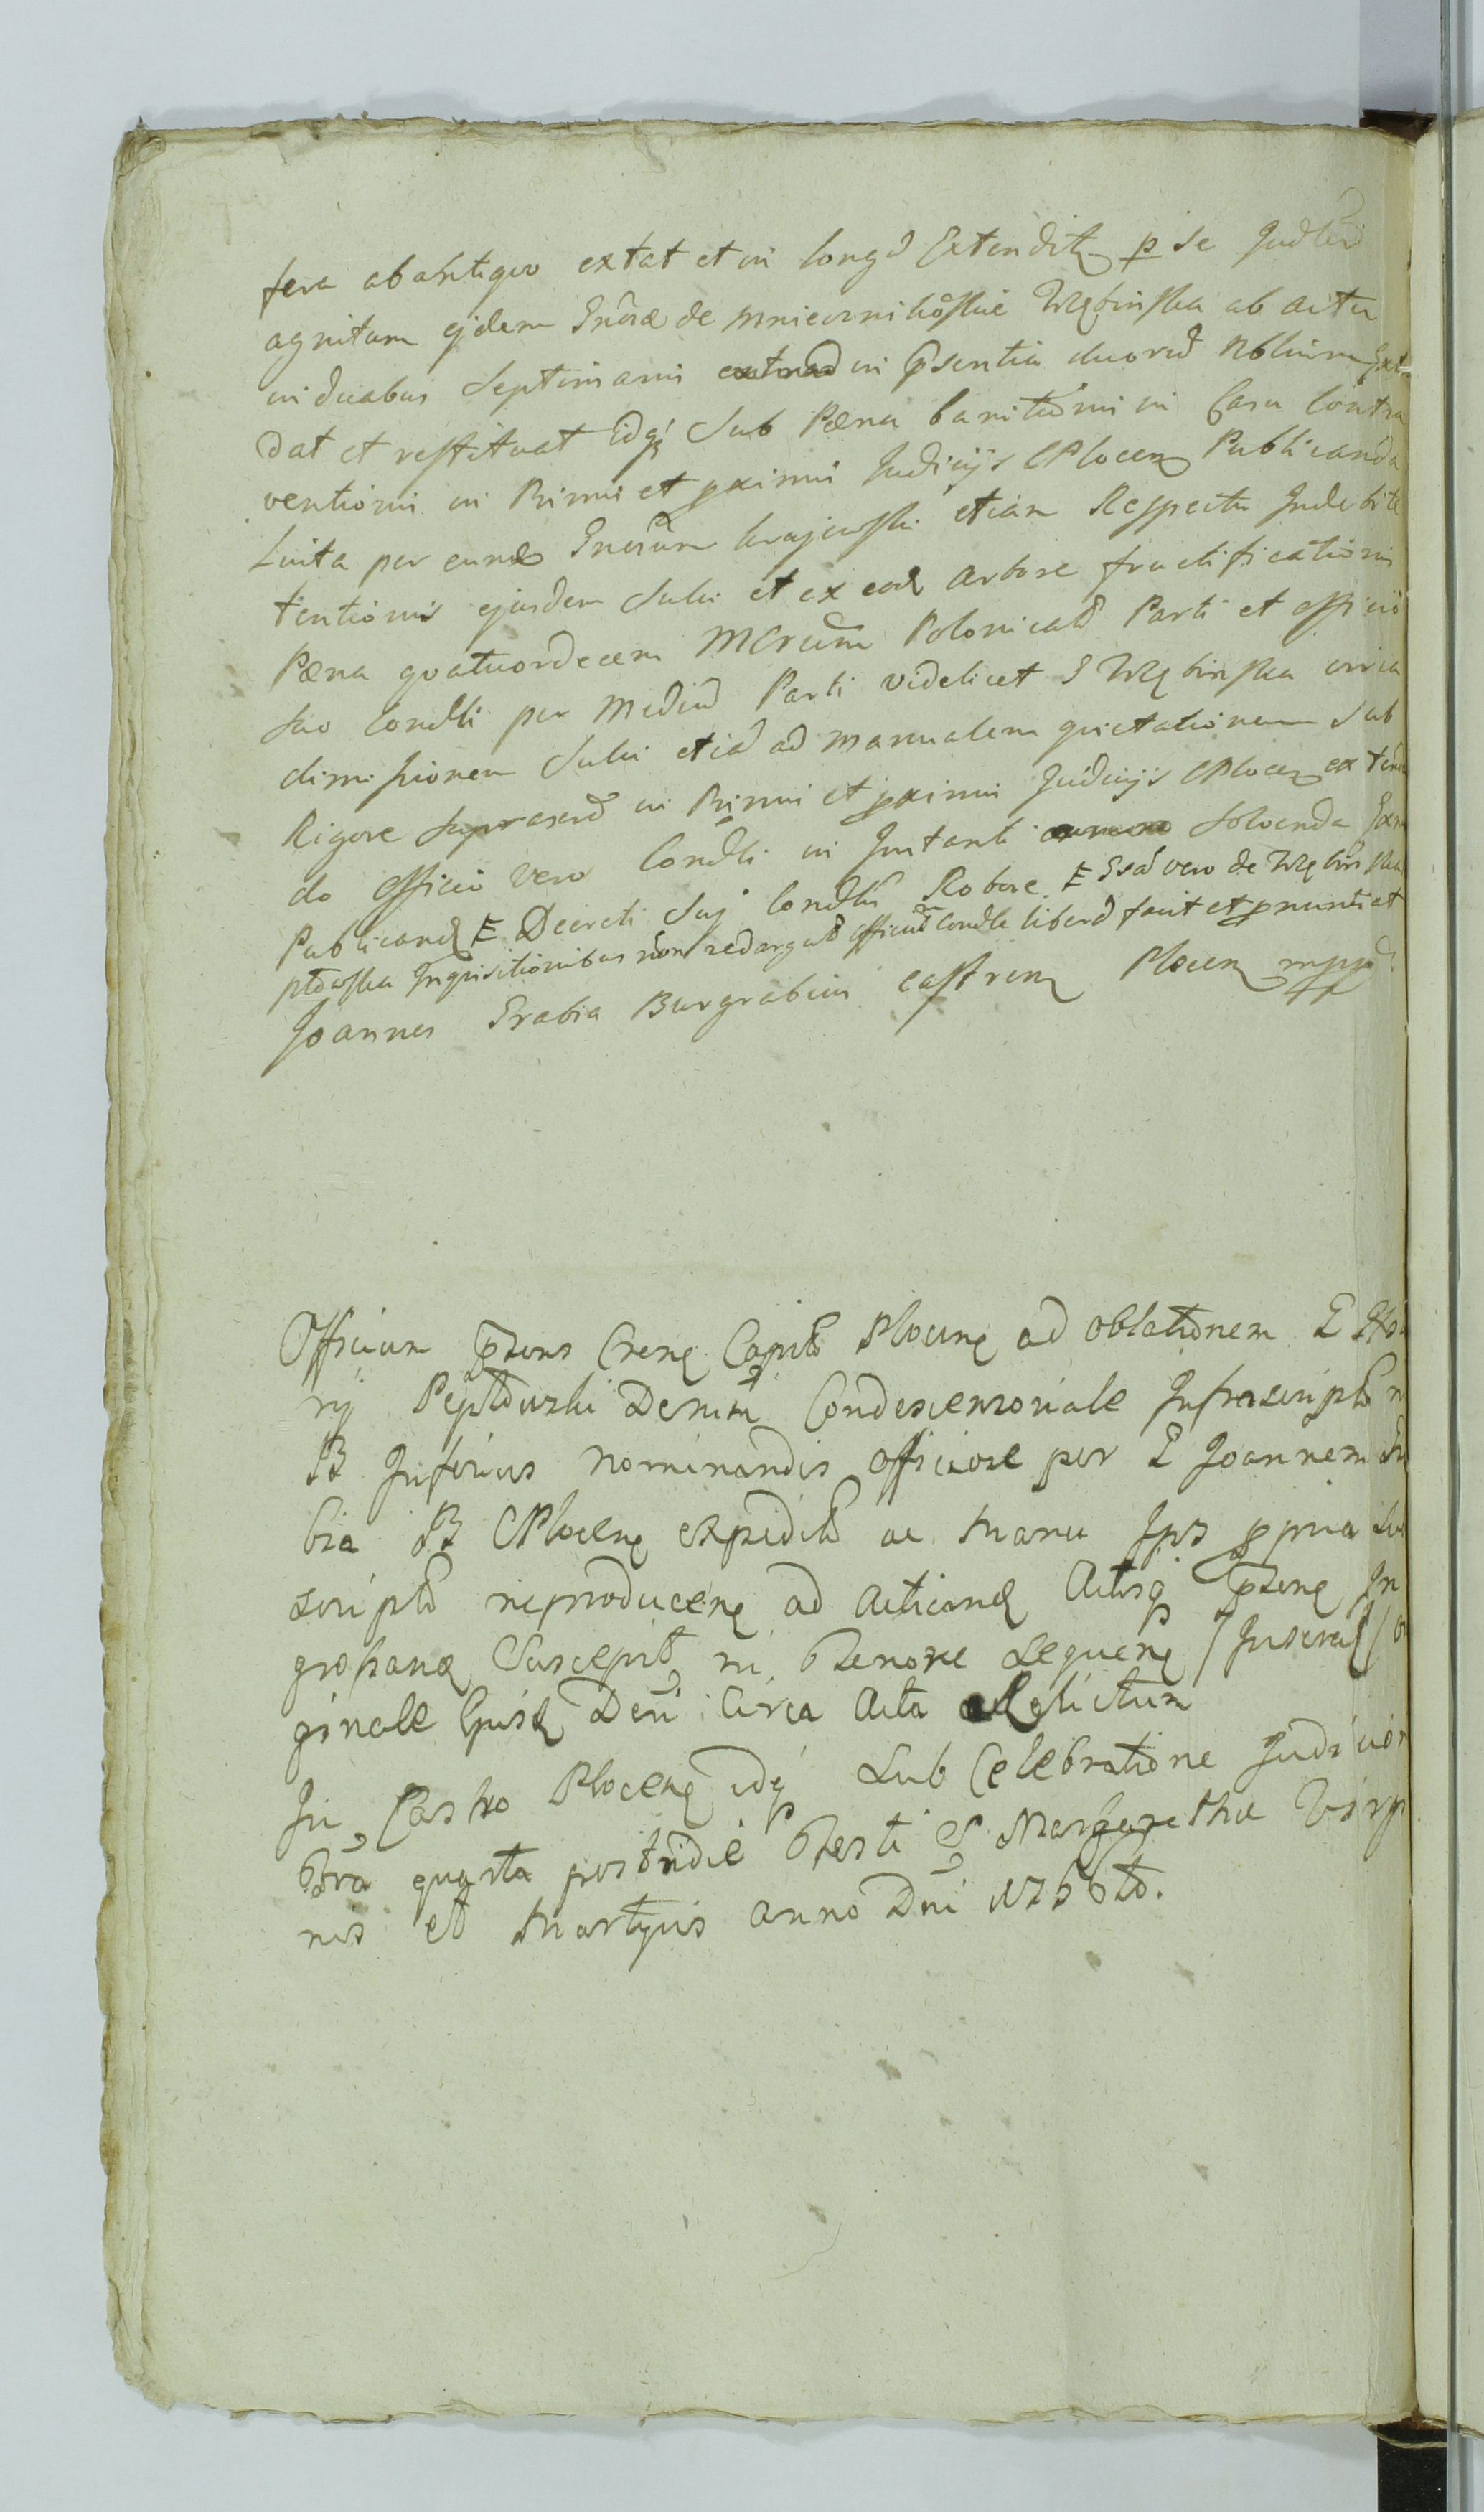 fera ab antiquo extat et in longũ Extendit p se Judtũ
agnitam ejdem Gnosæ de Mniewnikoskie Wębinska ab actu
in duabus Septimanis in pñsentia duorũ Nobilium Ext
dat et restituat idq; Sub Pæna banitionis in Casu Contra
ventionis in Primis et pximis Judicijs CPlocen Publicanda
Luita per eund Gnosum Krajewski etiam Respectu Indebite
tentionis ejusdem Sulei et ex eod Arbore fructificationis
Pæna quatuordecem MCrum Polonicalũ Parti et officio
suo Condli per Mediũ Parti videlicet G Wębinska circa
dimissionem Sulei etiã ad manualem quietationem Sub
Rigore suprascrõ in Primis et pximis Judicijs CPlocen exten
do officio vero Condli in Instanti solvenda
Publicand E Decreti Suj Condlis Robore E Gsã vero de Wębinska
Inquisitionibus non redargutũ officiũ Condle liberũ facit et pnuntiat
Joannes Grabia Burgrabius Castren Plocen mpp

Officium pñtens Crene Capitle Plocene ad oblationem G
rij Decrtum Condescensoriale Infrascriptũ
B Inferius nominandis Officiose per G Joannem Gra
bia B CPlocene expeditũ ac Manu Ips ppria Sub
scriptũ reproducene ad Acticand Actisq pñtene In
grossand Suscepit in Tenore sequene / Inserat /
ginale hujsq Deti circa Acta Relictum
In Castro Plocene idq Sub Celebratione Judicior
fria quarta postridie Festi S Margarethæ Virgi
nis et Martyris anno Dni